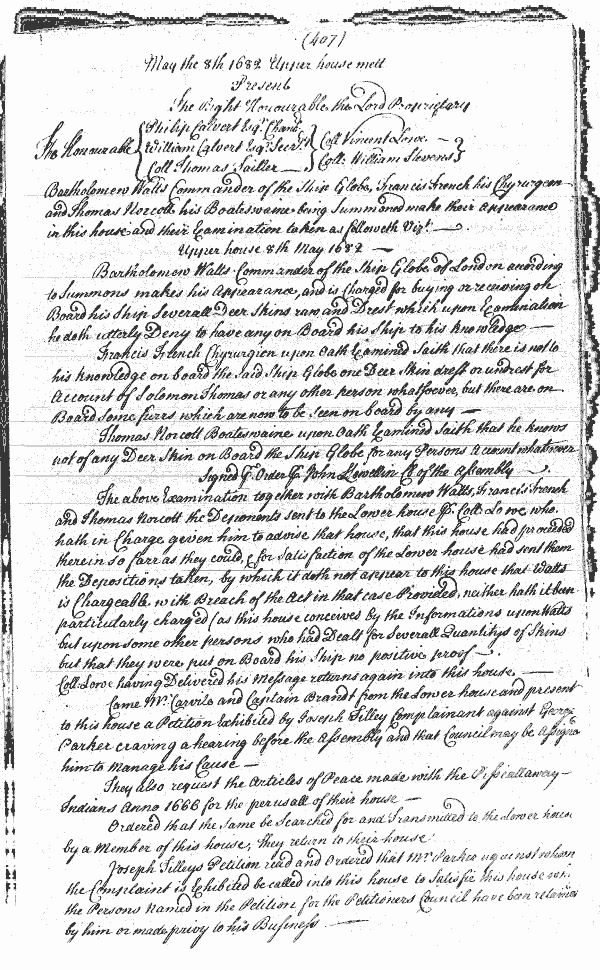 (407)
May the 8th 1682 Upper house mett
Present
The Right Honourable the Lord Proprietary
The Honourable
Philip Calvert Esqr. Chanr.
William Calvert Esqr. Secr.
Coll Thomas Tailler
Coll Vincent Lowe
Coll: William Stevens
Bartholomew Watts Commander of the Ship Globe, Francis French his Chyrurgeon
and Thomas Norcott his Boateswaine being Summoned make their Appearance
in this house and their Examination taken as followeth Vizt.
Upper house 8th May 1682
Bartholomew Watts Commander of the Ship Globe of London according
to Summons makes his Appearance, and is Charged for buying or receiving on
Board his Ship Severall Deer Skins raw and Drest which upon Examination
he doth utterly Deny to have any on Board his Ship to his knowledge
Francis French Chyrurgien upon Oath Examined Saith that there is not to
his knowledge on board the said Ship Globe one Deer Skin drest or undrest for
Account of Solomon Thomas or any other person whatsoever, but there are on
Board Some furrs which are now to be Seen on board by any
Thomas Norcott Boateswaine upon Oath Examined Saith that he knows
not of any Deer Skin on Board the Ship Globe for any Persons Account whatever
Signed p. Order p. John Llewellin Cl of the Assembly
The above Examination together with Bartholomew Watts, Francis French
and Thomas Norcott the Deponents sent to the Lower house p. Coll. Lowe who
hath in Charge given him to advise that house, that this house had proceeded
therein so farr as they could, & for Satisfaction of the Lower house had sent them
the Depositions taken, by which it doth not appear to this house that Watts
is Chargeable with Breach of the Act in that case Provided, neither hath it been
particularly charged (as this house conceives by the Informations upon Watts
but upon some other persons who had Dealt for Severall Quantitys of Skins
but that they were put on Board his Ship no positive proof
Coll: Lowe having Delivered his Message returns again into this house.
Came Mr. Carvile and Captain Brandt from the Lower house and present
to this house a Petition Exhibited by Joseph Tilley Complainant against George
Parker craving a hearing before the Assembly and that Council may be Assign'd
him to Manage his Cause
They also request the Articles of Peace made with the Pisscattaway
Indians Anno 1666 for the perusall of their house
Ordered that the same be Searched for and Transmitted to the Lower house
by a Member of this house, They return to their house
Joseph Tilleys Petition read and Ordered that Mr. Parker against whom
the Complaint is Exhibited be called into this house to Satisfie this house
the Persons Named in the Petition for the Petitioners Council have been retained
by him or made privy to his Business